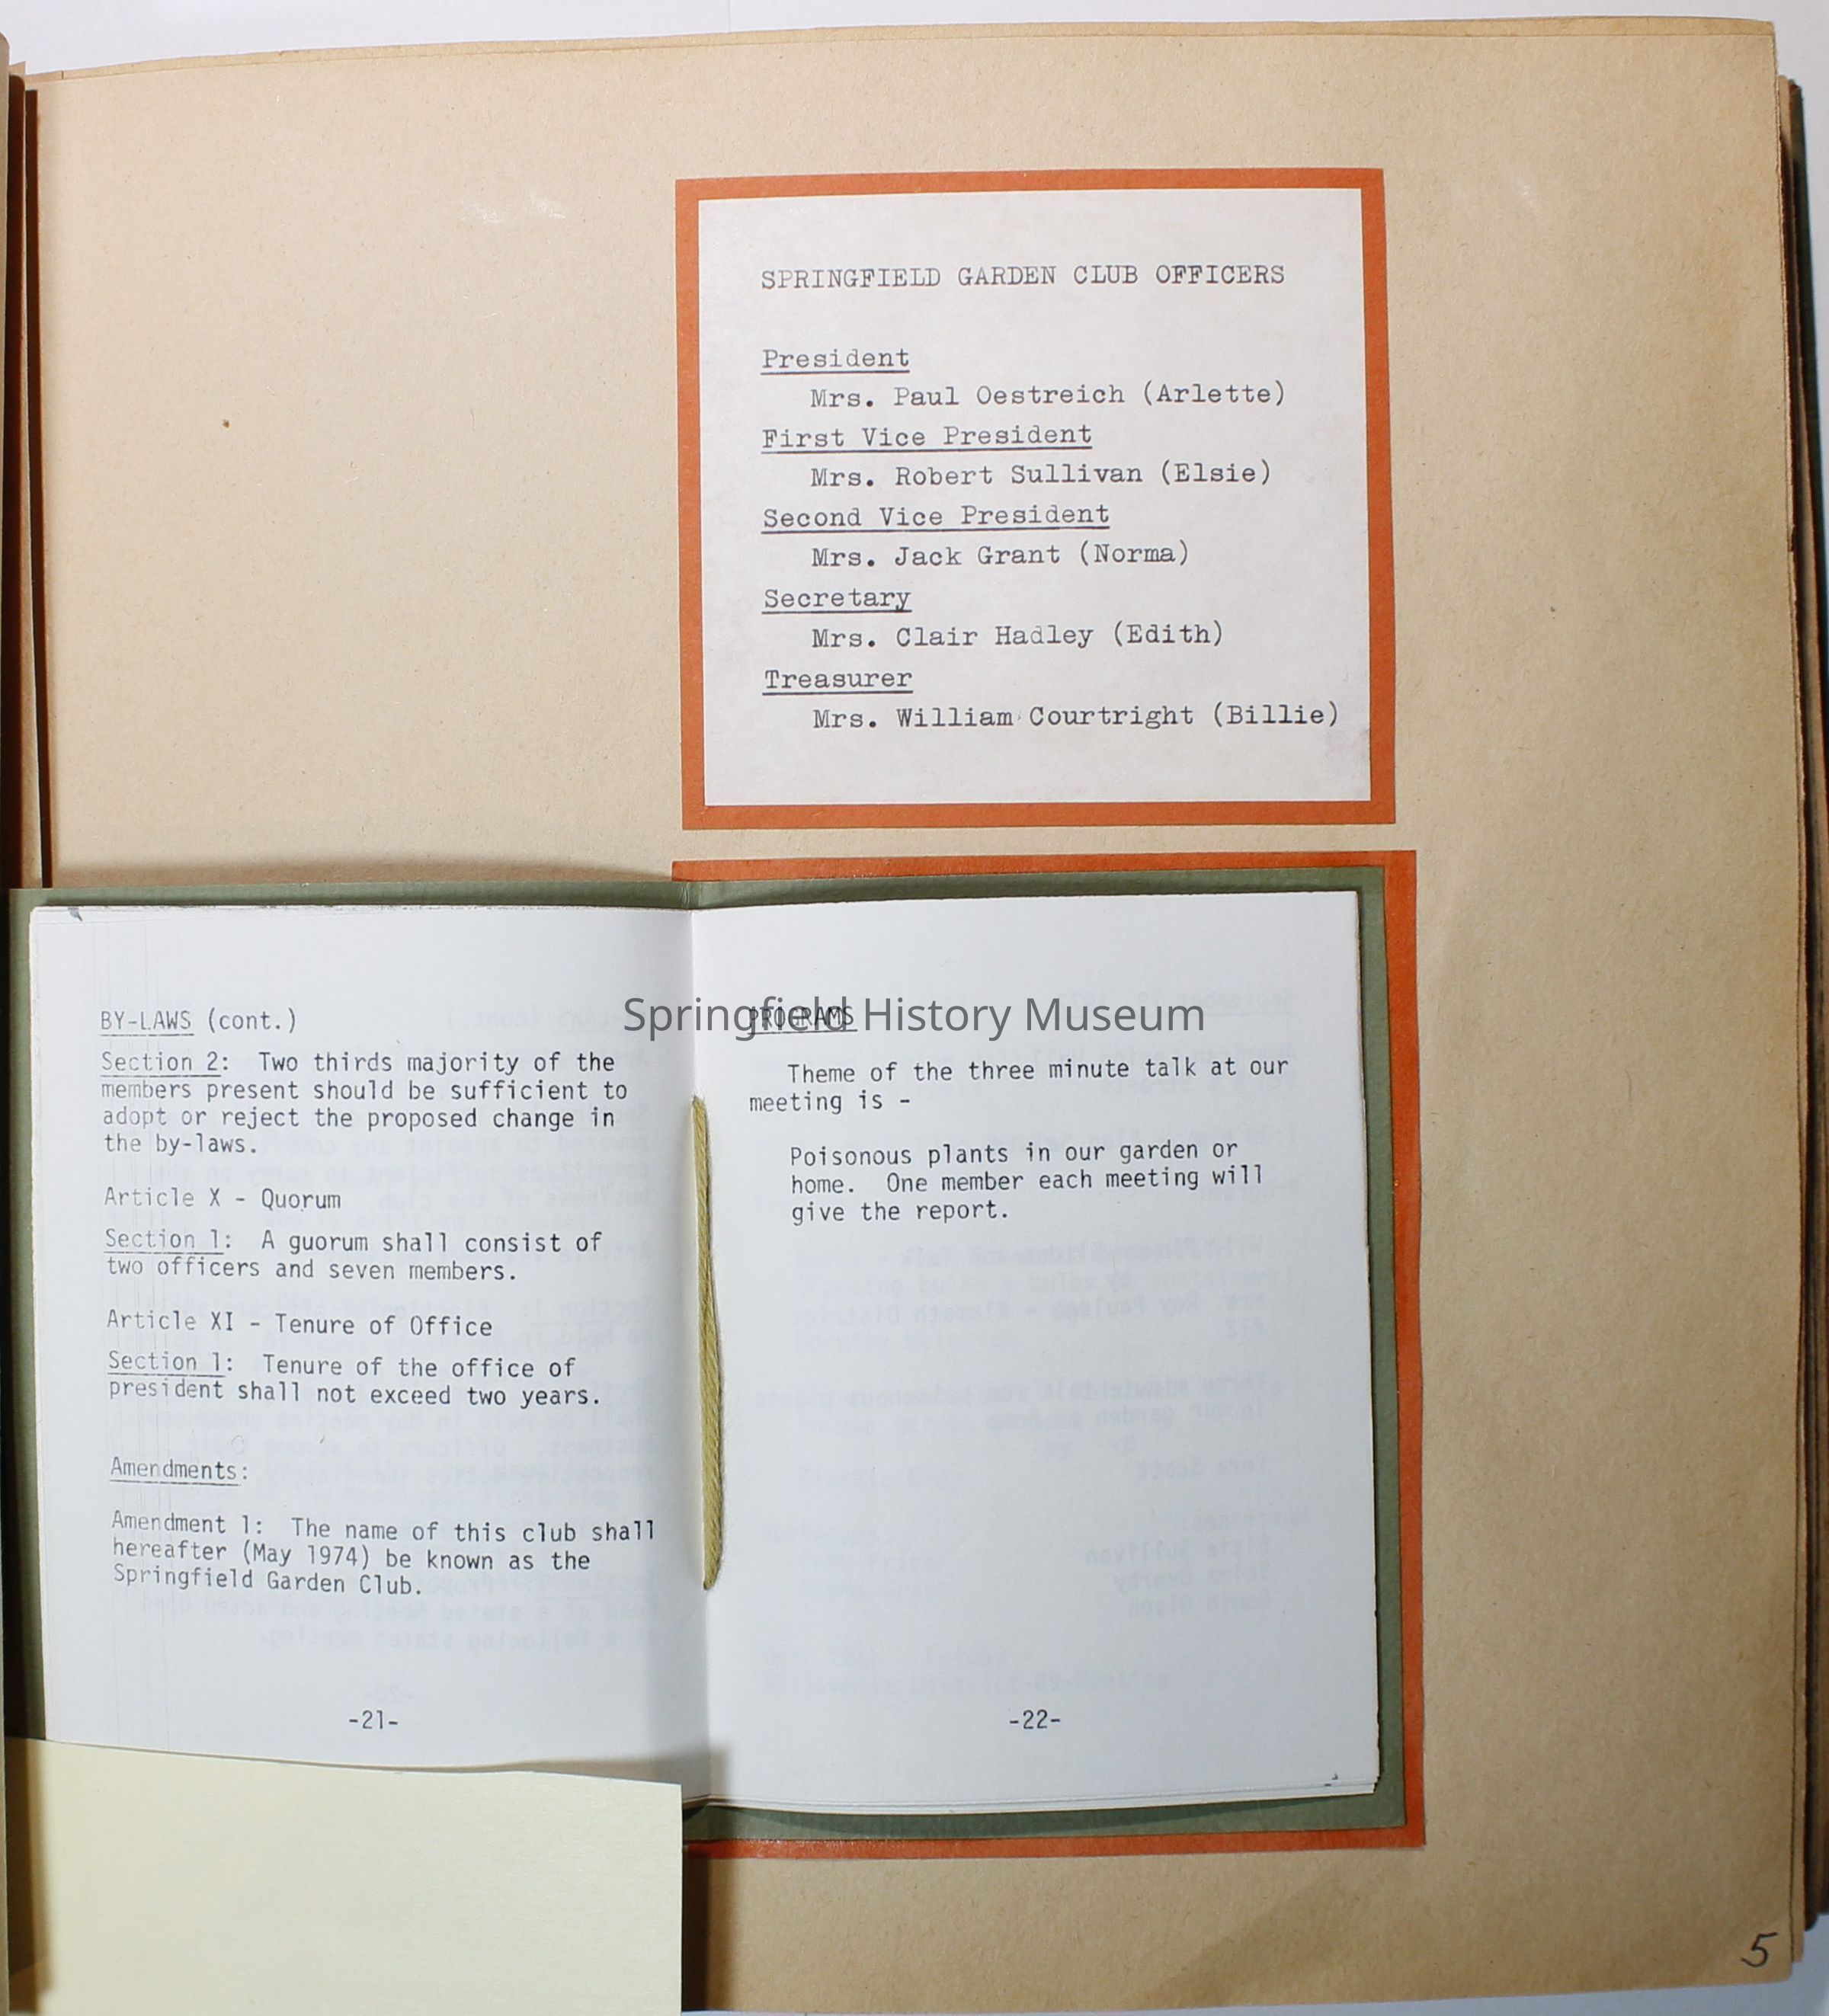 SPRINGFIELD GARDEN CLUB OFFICERS
President
Mrs. Paul Oestreich (Arlette)
First Vice President
Mrs. Robert Sullivan (Elsie)
Second Vice President
Mrs. Jack Grant (Norma)
Secretary
Mrs. Clair Hadley (Edith)
Treasurer
Mrs. William Courtright (Billie)
BY-LAWS (cont.)
Section 2: Two thirds majority of the
members present should be sufficient to
adopt or reject the proposed change in
the by-laws.
Article X - Quorum
Section 1: A guorum shall consist of
two officers and seven members.
Article XI - Tenure of Office
Section 1: Tenure of the office of
president shall not exceed two years.
Amendments:
Amendment 1: The name of this club shall
hereafter (May 1974) be known as the
Springfield Garden Club.
-21-
PROGRAMS
Theme of the three minute talk at our
meeting is -
Poisonous plants in our garden or
home. One member each meeting will
give the report.
-22-
Springfield History Museum
5